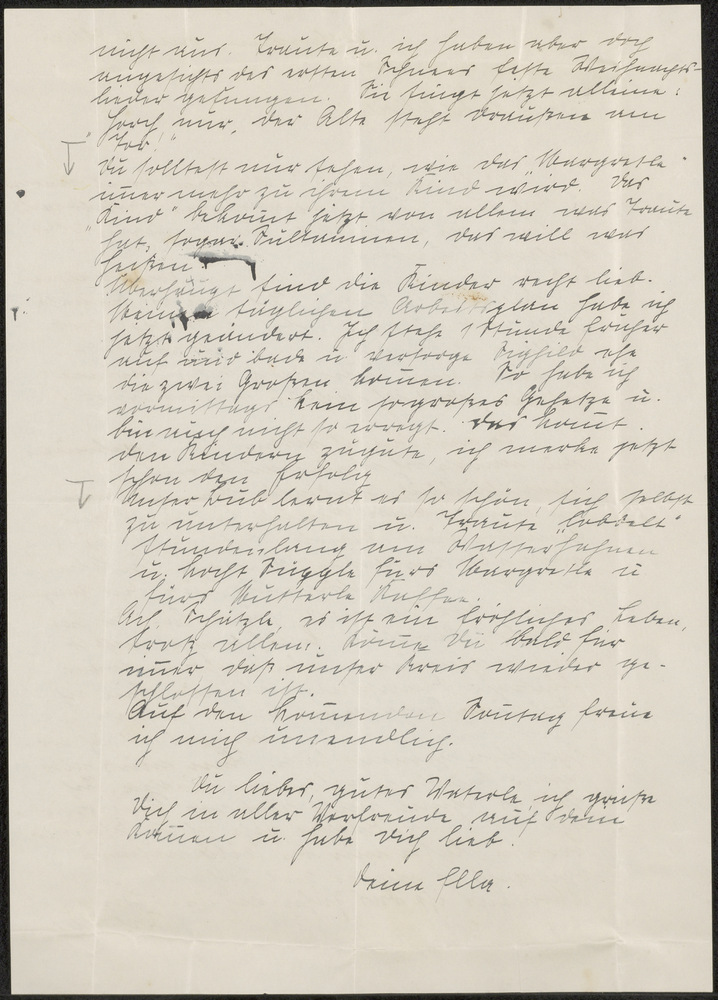 nicht aus. Traute u. ich haben aber doch
angesichts des ersten Schnees feste Weihnachts-
lieder gesungen. Sie singt jetzt alleine:
"Horch nur, der Alte steht draußen am
Tor!"
Du solltest nur sehen, wie das "Margretle"
immer mehr zu ihrem Kind wird. Das
"Kind" bekommt jetzt von allem was Traute
hat, sogar Sultaninen, das will was
heißen.
Überhaupt sind die Kinder recht lieb.
Meinen täglichen Arbeitsplan habe ich
jetzt geändert. Ich stehe 1 Stunde früher
auf und bade u. versorge Sighild ehe
die zwei Großen kommen. So habe ich
vormittags kein so großes Gehetze u.
bin auch nicht so erregt. Das kommt
den Kindern zugute, ich merke jetzt
schon den Erfolg.
Unser Bub lernt es so schön, sich selbst
zu unterhalten u. Traute
stundenlang am Wasserhahnen
u. kocht Süpple fürs Margretle u.
fürs Mutterle Kaffee.
Ach, Schätzle, es ist ein fröhliches Leben,
trotz allem. Komme Du bald für
immer, daß unser Kreis wieder ge-
schlossen ist.
Auf den kommenden Sonntag freue
ich mich unendlich.
Du liebes, gutes Vaterle, ich grüße
Dich in aller Vorfreude auf Dein
Kommen u. habe Dich lieb!
Deine Ella.